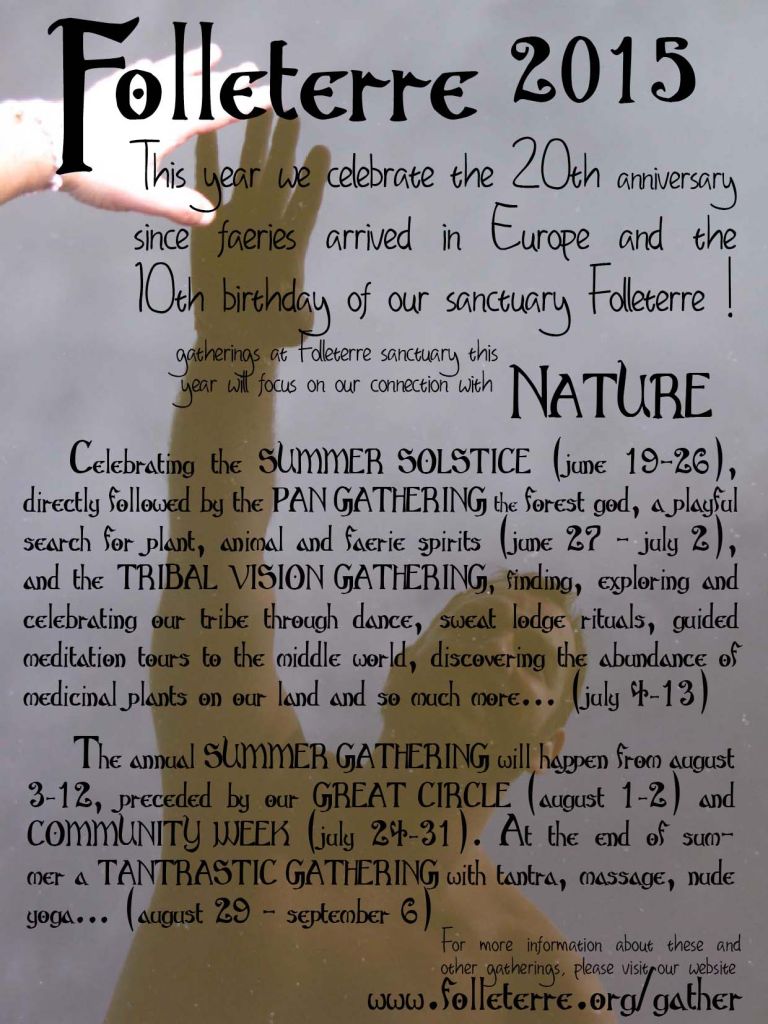 Folleterre 2015
This year we celebrate the 20th anniversary
since faeries arrived in Europe and the
10th birthday of our sanctuary Folleterre !
gatherings at Folleterre sanctuary this
year will focus on our connection with NATURE
Celebrating the SUMMER SOLSTICE (june 19-26),
directly followed by the PAN GATHERING the forest god, a playful
search for plant, animal and faerie spirits (june 27 - july 2),
and the TRIBAL VISION GATHERING, finding, exploring and
celebrating our tribe through dance, sweat lodge rituals, guided
meditation tours to the middle world, discovering the abundance of
medicinal plants on our land and so much more... (july 4-13)
The annual SUMMER GATHERING will happen from august
3-12, preceded by our GREAT CIRCLE (august 1-2) and
COMMUNITY WEEK (july 24-31). At the end of sum-
mer a TANTRASTIC GATHERING with tantra, massage, nude
yoga... (august 29 - september 6)
For more information about these and
other gatherings, please visit our website
www.folleterre.org/gather